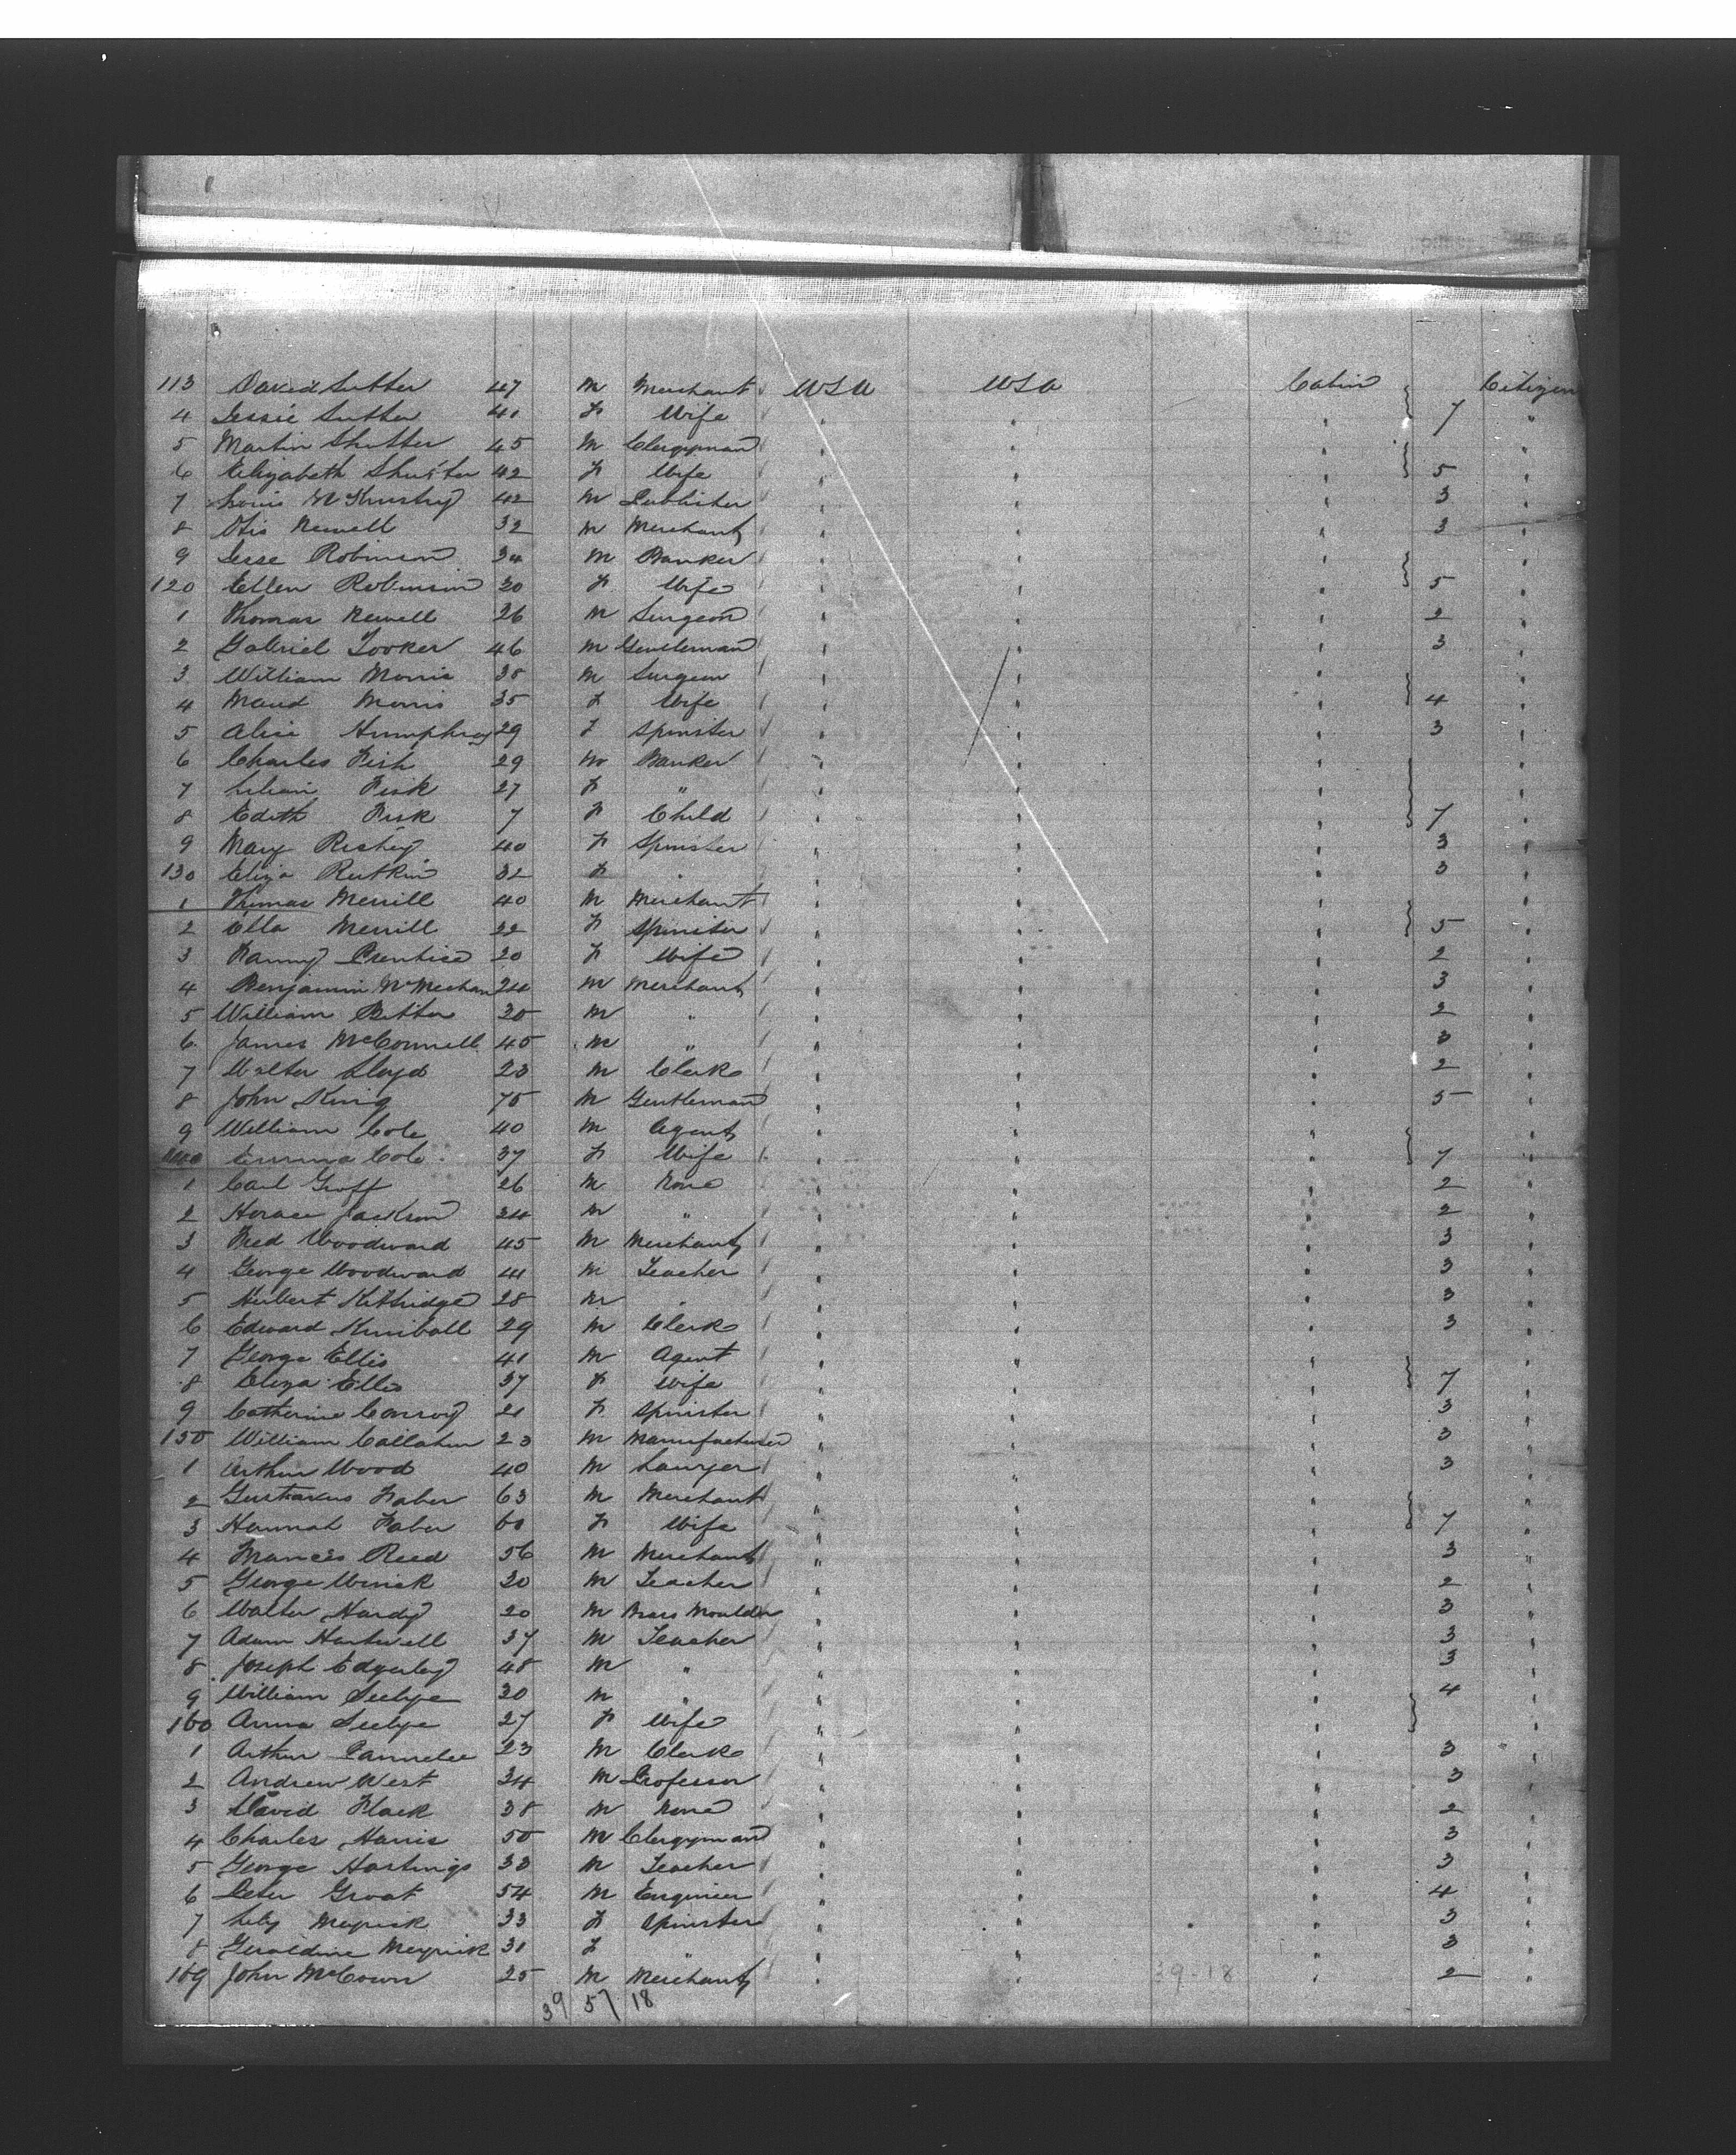 113 David Sutter 47 M Merchant USA USA Cabin Citizen
4 Jessie Sutter 41 F Wife " " " 7 "
5 Martin Shutter 45 M Clergyman " " " "
6 Elizabeth Shutter 42 F Wife " " " 5 "
7 Louis 42 M Publisher " " " 3 "
8 Otis Newell 32 M Merchant " " " 3 "
9 Jesse Robinson 34 M Banker " " " "
120 Ellen Robinson 30 F Wife " " " 5 "
1 Thomas Newell 26 M Surgeon " " " 2 "
2 Gabriel Tooker 46 M Gentleman " " " 3 "
3 William Morris 38 M Surgeon " " " "
4 Maud Morris 35 F Wife " " " 4 "
5 Alice Humphrey 29 F Spinster " " " 3 "
6 Charles Fish 29 M Banker " " " "
7 Lilian Fisk 27 F " " " " "
8 Edith Fisk 7 F Child " " " 7 "
9 Mary 40 F Spinster " " " 3 "
130 Eliza 32 F " " " " 3 "
1 Thomas Merrill 40 M Merchant " " " "
2 Ella Merrill 22 F Spinster " " " 5 "
3 Fanny Prentice 20 F Wife " " " 2 "
4 Benjamin McMechan 24 M Merchant " " " 3 "
5 William 30 M " " " " 2 "
6 James McConnell 45 M " " " " 3 "
7 Walter Lloyd 23 M Clerk " " " 2 "
8 John King 75 M Gentleman " " " 5 "
9 William Cole 40 M Agent " " " "
140 Emma Cole 37 F Wife " " " 7 "
1 Carl Groff 26 M None " " " 2 "
2 Horace Jackson 34 M " " " " 2 "
3 Fred Woodward 45 M Merchant " " " 3 "
4 George Woodward 41 M Teacher " " " 3 "
5 Herbert Kittridge 28 M " " " " 3 "
6 Edward Kimball 29 M Clerk " " " 3 "
7 George Ellis 41 M Agent " " " "
8 Eliza Ellis 37 F Wife " " " 7 "
9 Catherine Conroy 21 F Spinster " " " 3 "
150 William Callahan 23 M Manufacturer " " " 3 "
1 Arthur Wood 40 M Lawyer " " " 3 "
2 Gustavus Faber 63 M Merchant " " " "
3 Hannah Faber 60 F Wife " " " 7 "
4 Francis Reed 56 M Merchant " " " 3 "
5 George 30 M Teacher " " " 2 "
6 Walter Hardy 20 M Brass Moulder " " " 3 "
7 Adam Hartwell 37 M Teacher " " " 3 "
8 Joseph Edgerley 48 M " " " " 3 "
9 William Seelye 30 M " " " " 4 "
160 Anna Seelye 27 F Wife " " " "
1 Arthur Parmelee 23 M Clerk " " " 3 "
2 Andrew West 34 M Professor " " " 3 "
3 David Flack 38 M None " " " 2 "
4 Charles Harris 50 M Clergyman " " " 3 "
5 George Hastings 33 M Teacher " " " 3 "
6 Peter Groat 54 M Engineer " " " 4 "
7 Lily Meyrick 33 F Spinster " " " 3 "
8 Geraldine Meyrick 31 F " " " " 3 "
169 John McCown 25 M Merchant " " 39-18 " 2 "
39 57 18